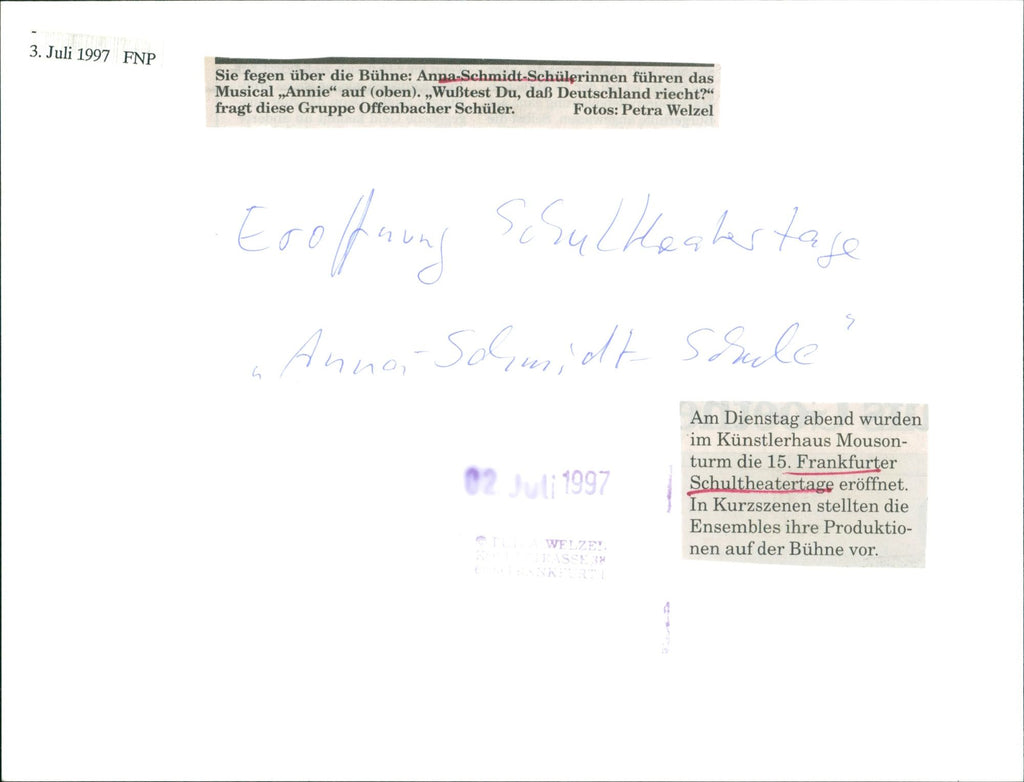 3. Juli 1997 FNP
Sie fegen über die Bühne: Anna-Schmidt-Schülerinnen führen das
Musical „Annie“ auf (oben). „Wußtest Du, daß Deutschland riecht?“
fragt diese Gruppe Offenbacher Schüler. Fotos: Petra Welzel
Eröffnung Schultheatertage
„Anna-Schmidt-Schule“
Am Dienstag abend wurden
im Künstlerhaus Mouson-
turm die 15. Frankfurter
Schultheatertage eröffnet.
In Kurzszenen stellten die
Ensembles ihre Produktio-
nen auf der Bühne vor.
02 Juli 1997
© PETRA WELZEL
FRANKFURT 1